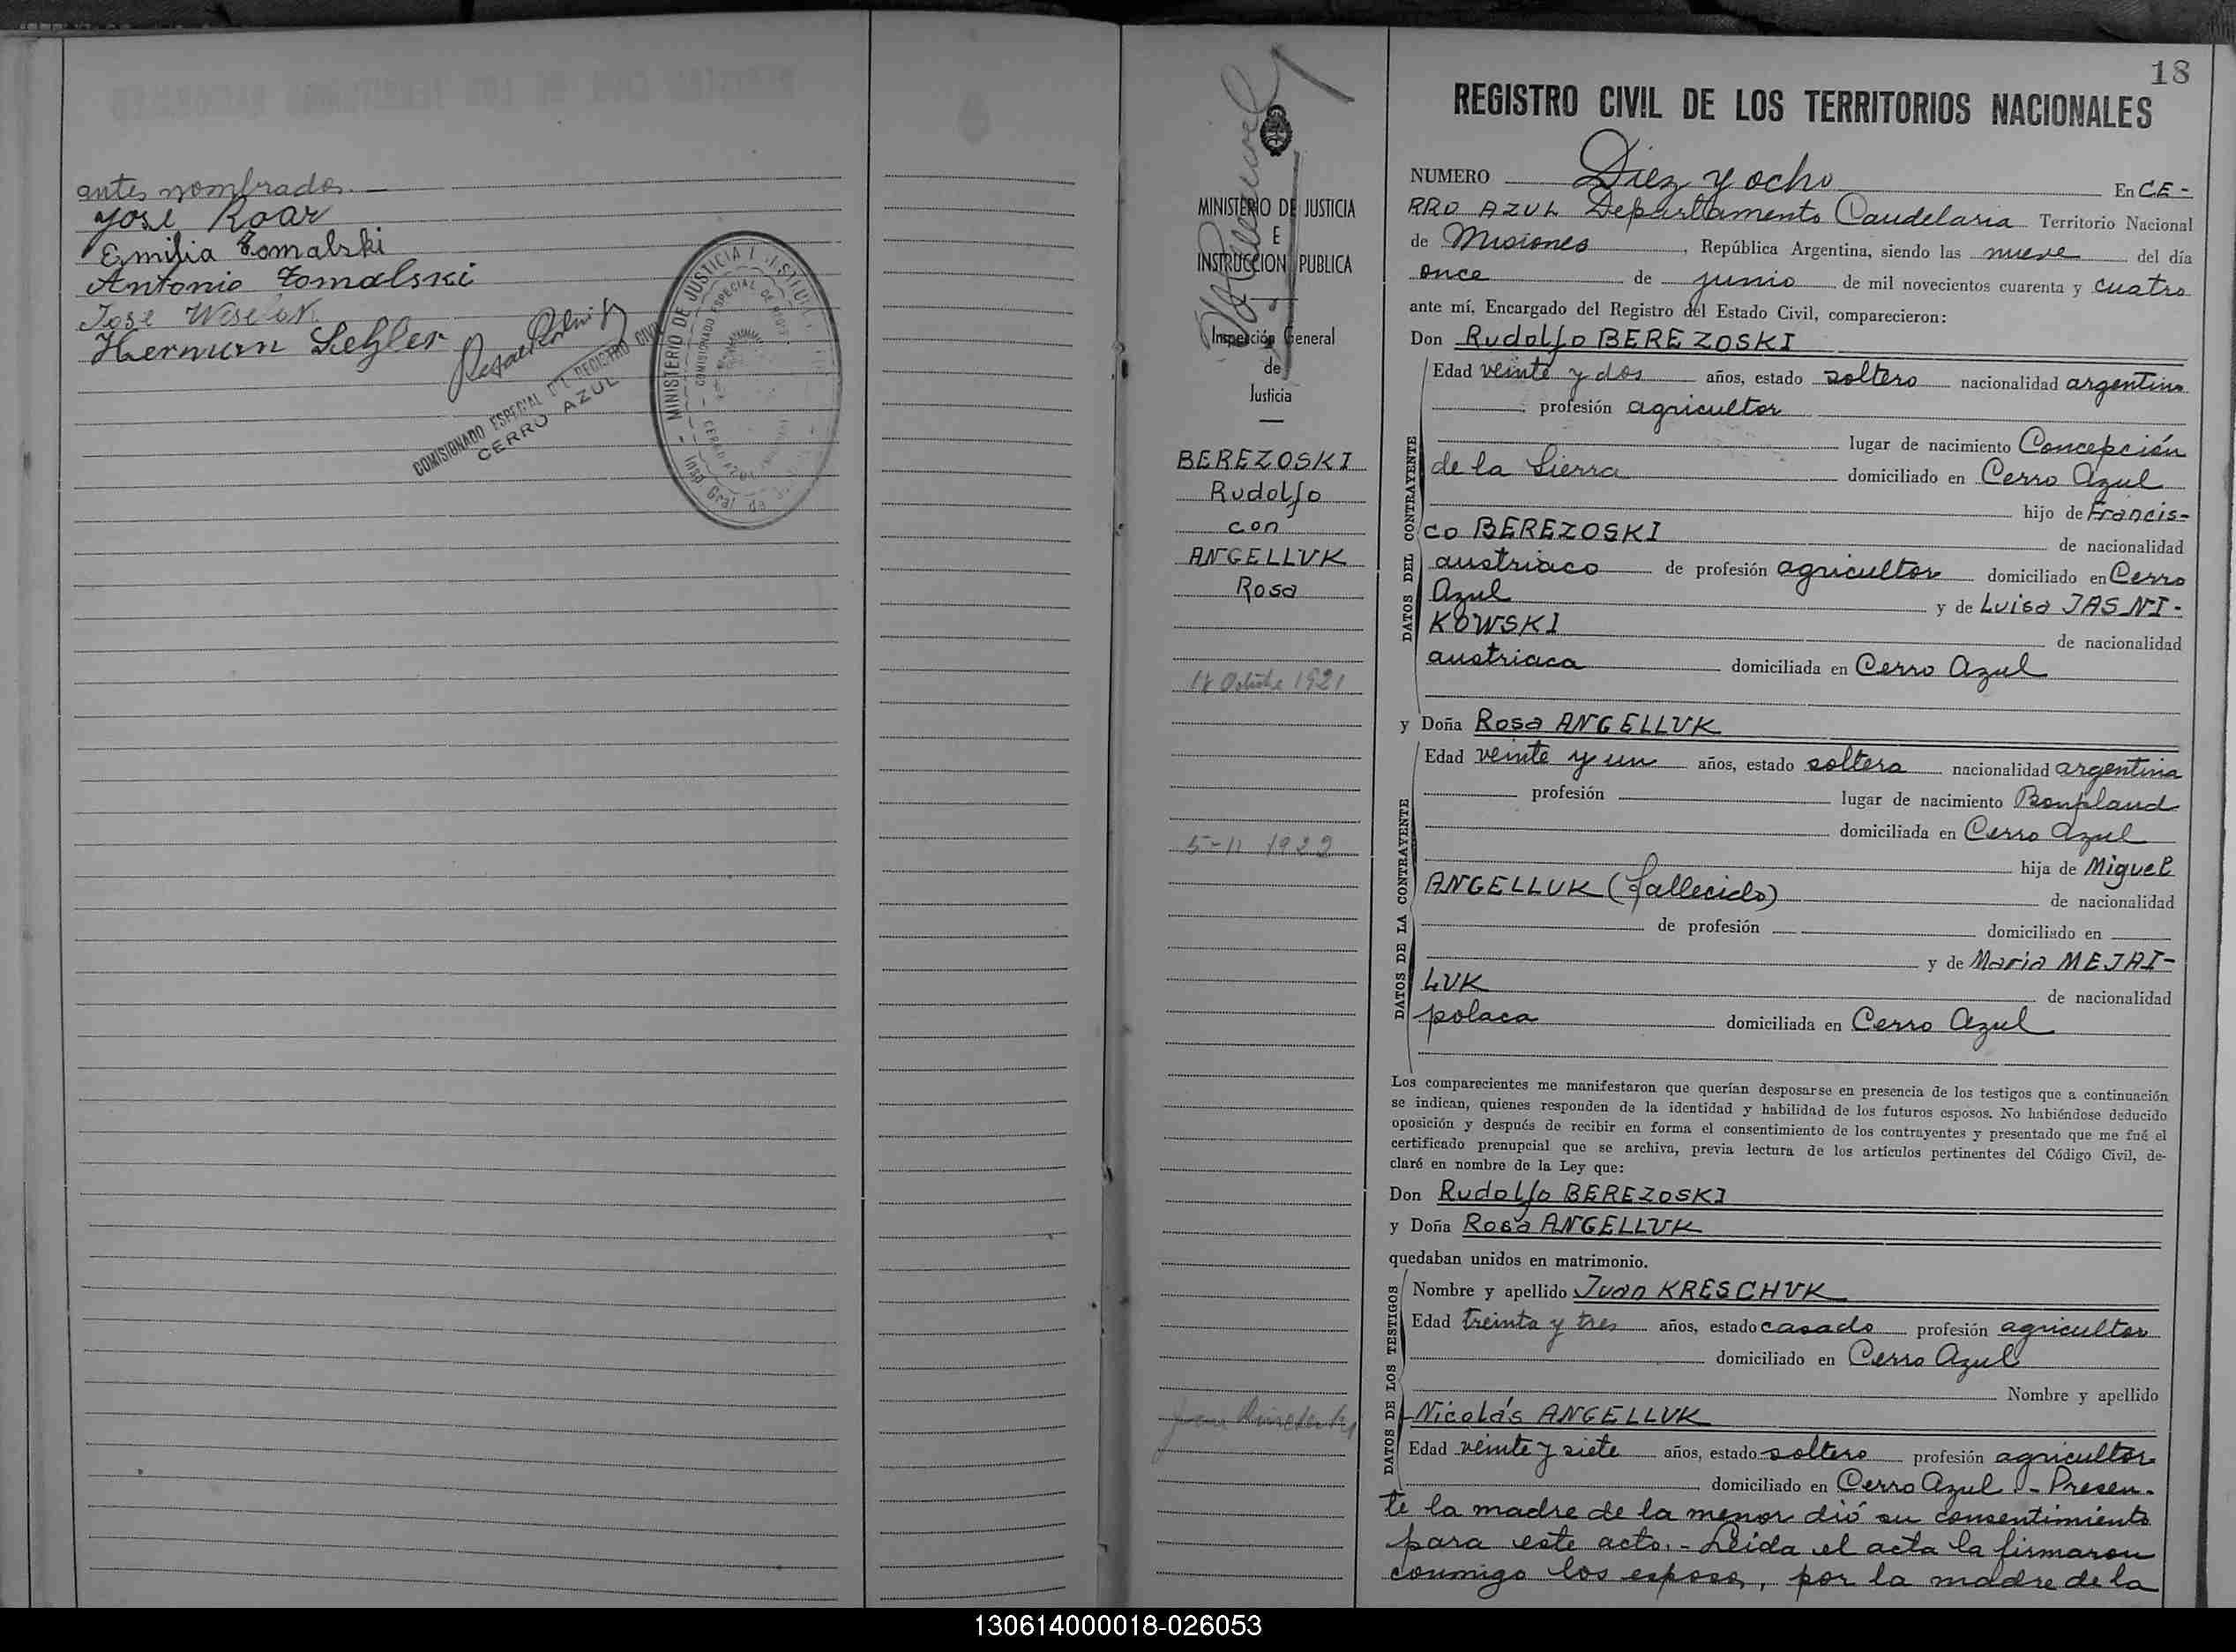 antes nombrados.—
José Roar
Emilia Tomalski
Antonio Tomalski
José
Herman
COMISIONADO ESPECIAL DEL REGISTRO CIVIL
CERRO AZUL
MINISTERIO DE JUSTICIA E INSTRUCCION
COMISIONADO ESPECIAL DE REGISTRO
Insp. Gral. de
MINISTERIO DE JUSTICIA
E
INSTRUCCION PUBLICA
Inspección General
de
Justicia
BEREZOSKI
Rudolfo
con
ANGELLUK
Rosa
18 Octubre 1921
5-11 1922
18
REGISTRO CIVIL DE LOS TERRITORIOS NACIONALES
NUMERO Diez y ocho En CE-
RRO AZUL Departamento Candelaria Territorio Nacional
de Misiones, República Argentina, siendo las nueve del día
once de junio de mil novecientos cuarenta y cuatro
ante mí, Encargado del Registro del Estado Civil, comparecieron:
Don Rudolfo BEREZOSKI
DATOS DEL CONTRAYENTE
Edad veinte y dos años, estado soltero nacionalidad argentino
profesión agricultor
lugar de nacimiento Concepción
de la Sierra domiciliado en Cerro Azul
hijo de Francis-
co BEREZOSKI de nacionalidad
austriaco de profesión agricultor domiciliado en Cerro
Azul y de Luisa JASNI-
KOWSKI de nacionalidad
austriaca domiciliada en Cerro Azul
y Doña Rosa ANGELLUK
DATOS DE LA CONTRAYENTE
Edad veinte y un años, estado soltera nacionalidad argentina
profesión lugar de nacimiento Bonpland
domiciliada en Cerro Azul
hija de Miguel
ANGELLUK (fallecido) de nacionalidad
de profesión domiciliado en
y de Maria MEJAI-
LUK de nacionalidad
polaca domiciliada en Cerro Azul
Los comparecientes me manifestaron que querían desposarse en presencia de los testigos que a continuación
se indican, quienes responden de la identidad y habilidad de los futuros esposos. No habiéndose deducido
oposición y después de recibir en forma el consentimiento de los contrayentes y presentado que me fué el
certificado prenupcial que se archiva, previa lectura de los artículos pertinentes del Código Civil, de-
claré en nombre de la Ley que:
Don Rudolfo BEREZOSKI
y Doña Rosa ANGELLUK
quedaban unidos en matrimonio.
DATOS DE LOS TESTIGOS
Nombre y apellido Juan KRESCHUK
Edad treinta y tres años, estado casado profesión agricultor
domiciliado en Cerro Azul
Nombre y apellido
Nicolás ANGELLUK
Edad veinte y siete años, estado soltero profesión agricultor
domiciliado en Cerro Azul.- Presen-
te la madre de la menor dió su consentimiento
para este acto.- Leida el acta la firmaron
conmigo los esposos, por la madre de la
130614000018-026053